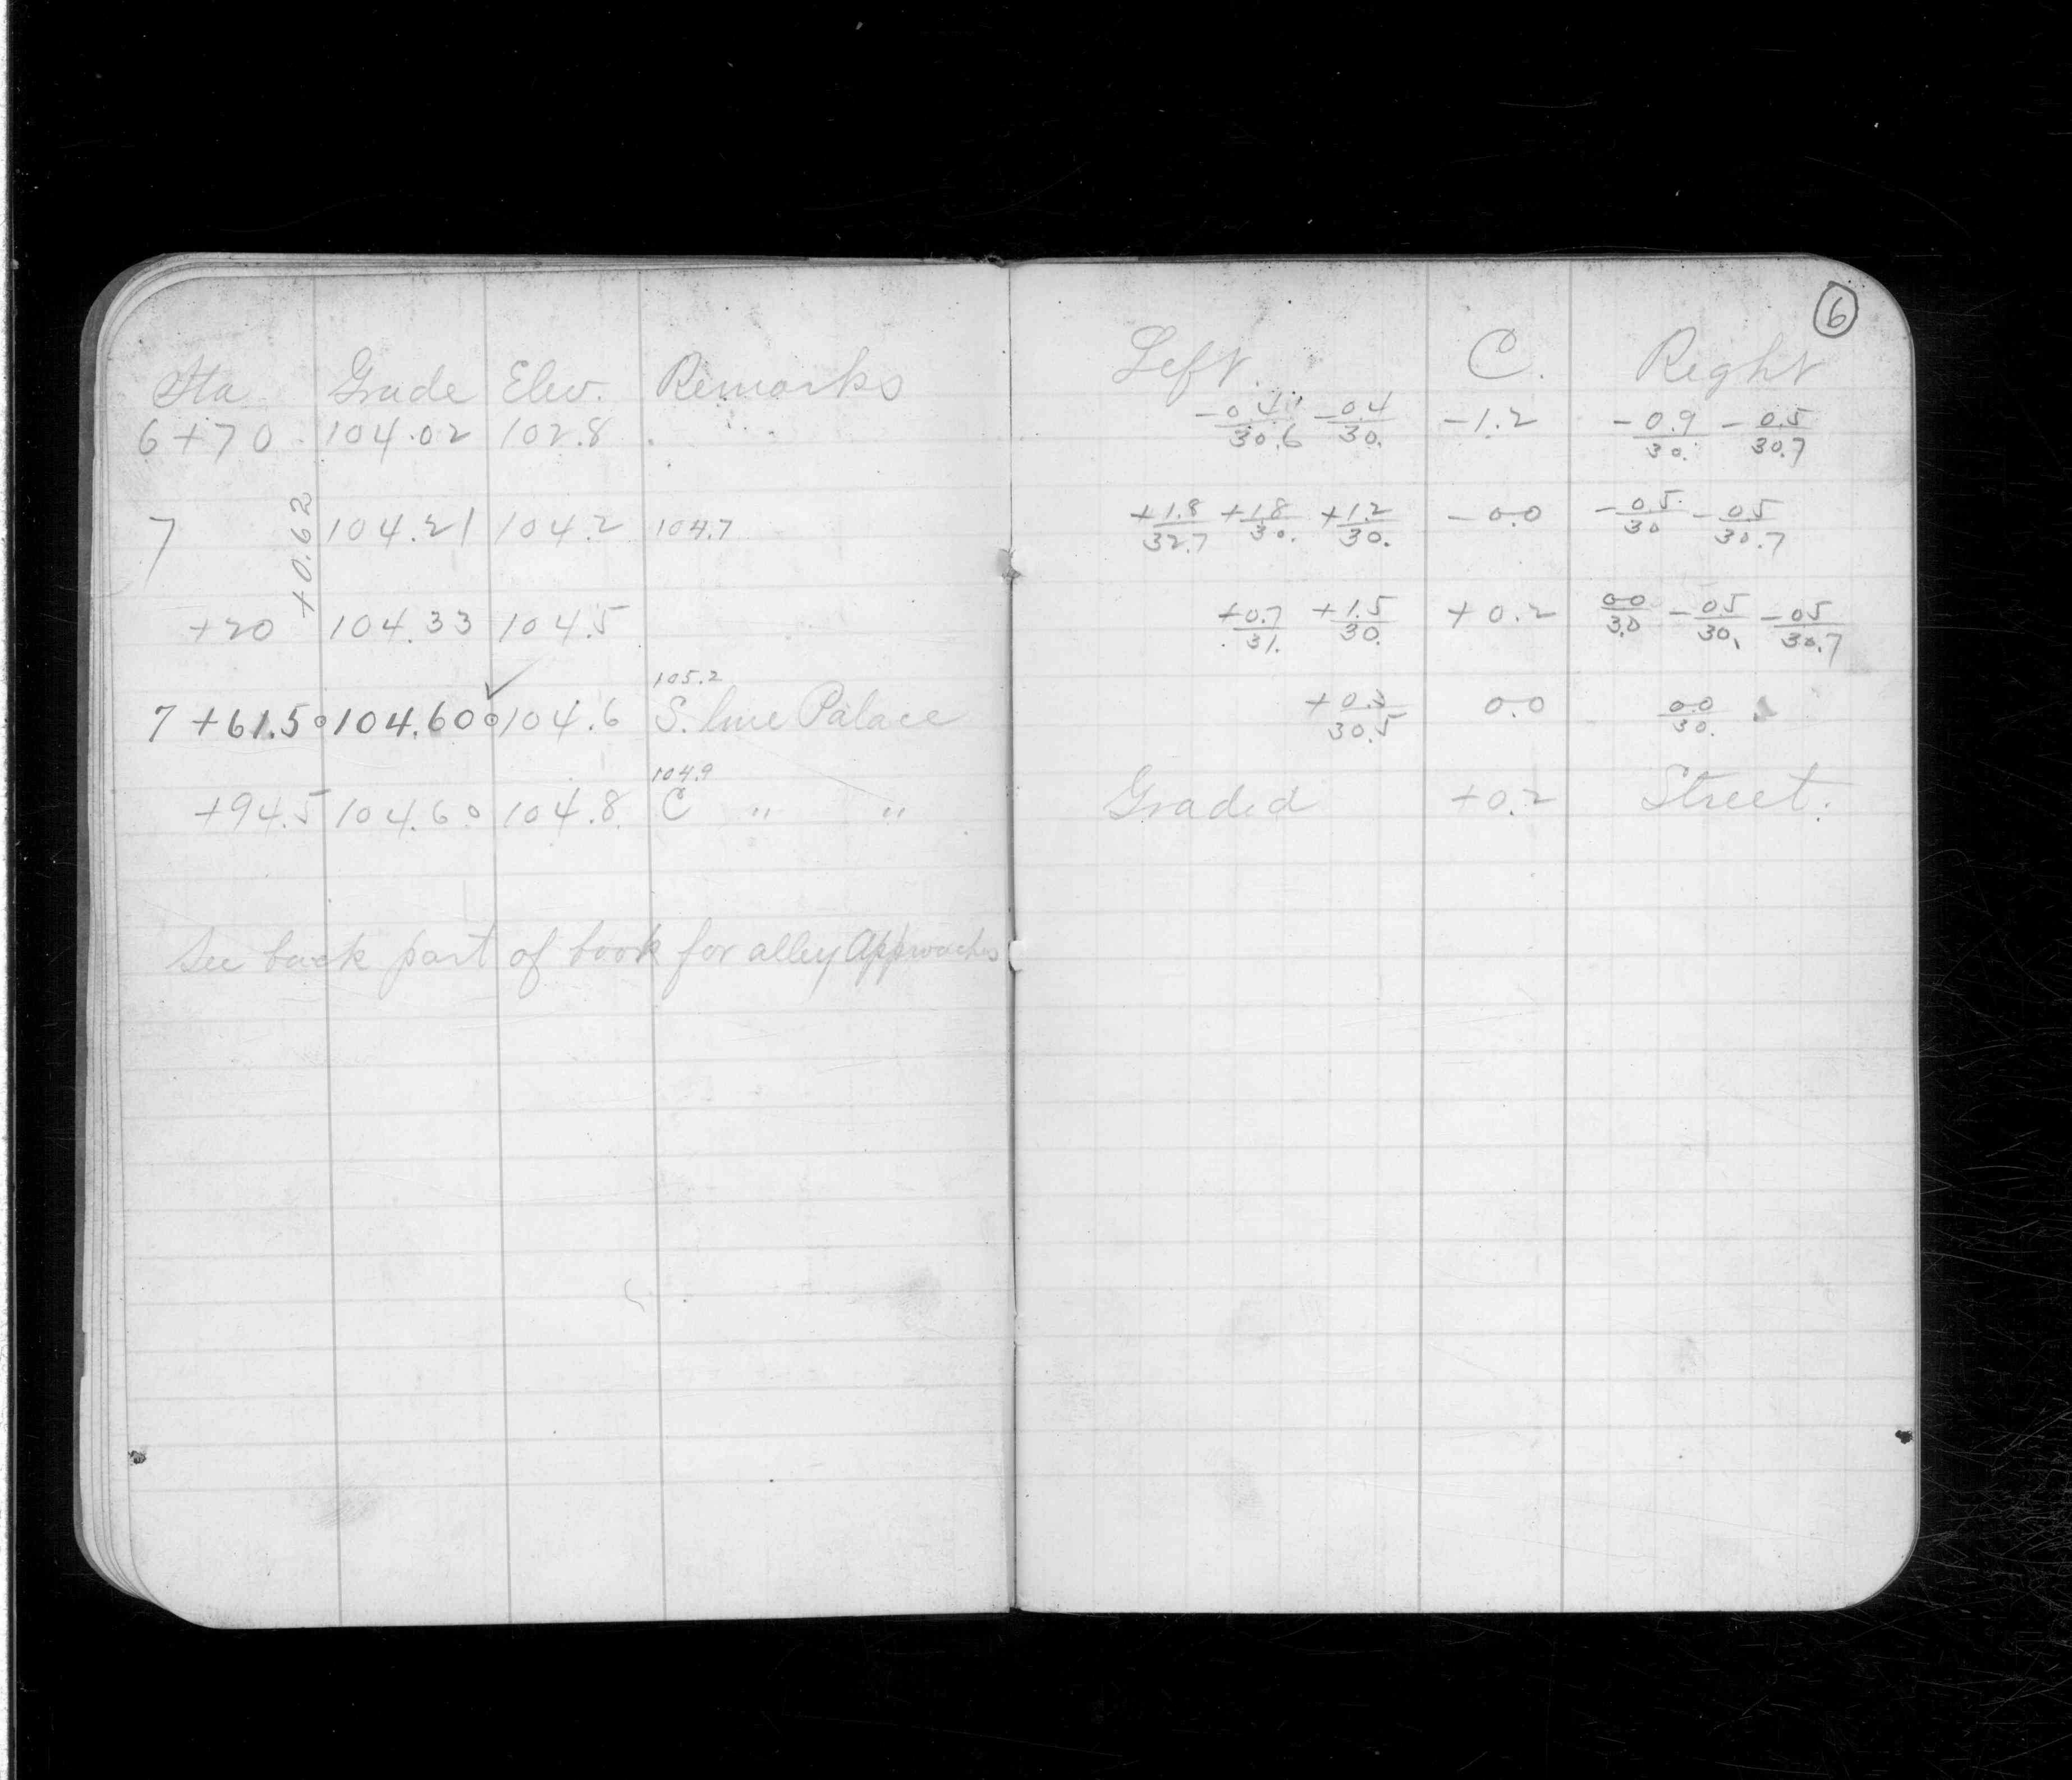 Sta Grade Elev. Remarks
6+70 104.02 102.8
+0.62
7 104.21 104.2 104.7
+20 104.33 104.5
105.2
7+61.5 104.60 104.6 S. line Palace
104.9
+94.5 104.60 104.8 C " "
See back part of book for alley Approaches
6
Left. C. Right
-0.4/30.6 -0.4/30. -1.2 -0.9/30. -0.5/30.7
+1.8/32.7 +1.8/30. +1.2/30. -0.0 -0.5/30 -0.5/30.7
+0.7/31. +1.5/30. +0.2 00/30 -05/30. -05/30.7
+0.3/30.5 0.0 0.0/30.
Graded +0.2 Street.